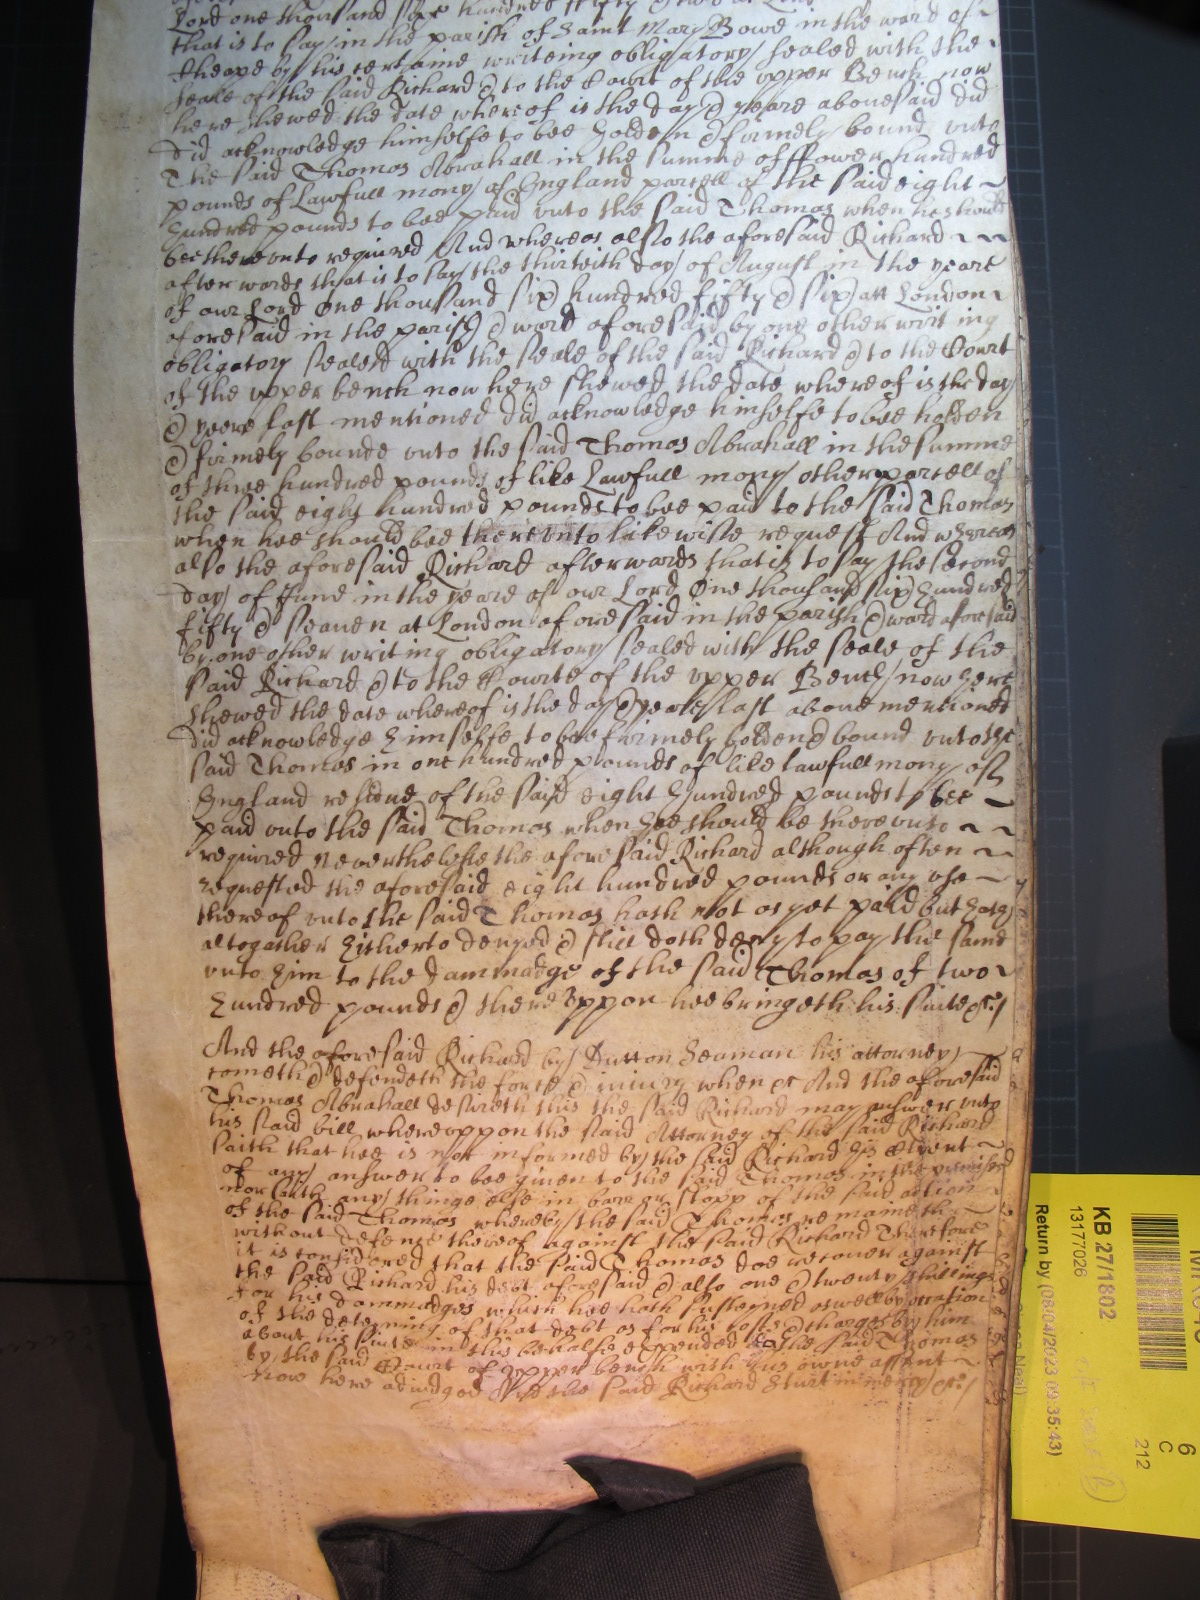 Lord one thousand six hundred fifty
that is to say in the parish of Saint Mary Bowe in the ward of
Cheape by his certaine writeing obligatory sealed with the
seale of the said Richard & to the Court of the upper Bench now
here shewed the date whereof is the day & yeare abovesaid did
did acknowledge himselfe to bee holden & firmely bound unto
The said Thomas Abrahall in the summe of ffower hundred
pounds of Lawfull mony of England parcell of the said eight
hundred pounds to bee paid unto the said Thomas when hee should
bee thereunto required And whereas also the aforesaid Richard
after words that is to say the thirteith day of August in the yeare
of our Lord One thousand six hundred fifty & six att London
aforesaid in the parish & ward aforesaid by one other writ ing
obligatory sealed with the seale of the said Richard & to the Court
of the upper bench now here shewed the date whereof is the day
& yeere last mentioned did acknowledge himselfe to bee holden
& firmely bounde unto the said Thomas Abrahall in the summe
of three hundred pounds of like Lawfull mony other parcell of
the said eight hundred pounds to bee paid to the said Thomas
when hee should bee thereunto likewise request And whereas
also the aforesaid Richard afterwards that is to say the second
day of June in the yeare of our Lord One thousand six hundred
fifty & seaven at London aforesaid in the parish & ward aforesaid
by one other writing obligatory sealed with the seale of the
said Richard & to the Courte of the upper Bench now here
shewed the date whereof is the day & yeare last above mentioned
did acknowledge himselfe to bee firmely holden & bound unto the
said Thomas in one hundred pounds of like lawfull mony of
England residue of the said eight hundred pounds to bee
paid unto the said Thomas when hee should be thereunto
required Neverthelesse the aforesaid Richard although often
requested the aforesaid eight hundred pounds or any
thereof unto the said Thomas hath not as yet paid but hath
altogather hitherto denyed & still doth deny to pay the same
unto him to the dammadge of the said Thomas of two
hundred pounds & there uppon hee bringeth his suite &c
And the aforesaid Richard by Dutton Seaman his attorney
cometh & defendeth the force & iniury when &c And the aforesaid
Thomas Abrahall desireth that the said Richard may answer unto
his said bill whereuppon the said Attorney of the said Richard
saith that hee is not informed by the said Richard his Clyent
of any answer to bee given to the said Thomas in the premises
nor saith any thinge else in barr or stopp of the said action
of the said Thomas whereby the said Thomas remaineth
without defence thereof against the said Richard Therefore
it is considered that the said Thomas doe recover against
the said Richard his debt aforesaid & also one & twenty shillings
for his dammadges which hee hath susteyned aswell by occasion
of the deteyning of that debt as for his costs & charges by him
about his suite in this behalfe expended to the said Thomas
by the said Court of upper bench with his owne assent
now here adiudged And the said Richard Sturt in mercy &c
KB 27/1802
13177026
Return by (08/04/2023 09:35:43)
6
C
212